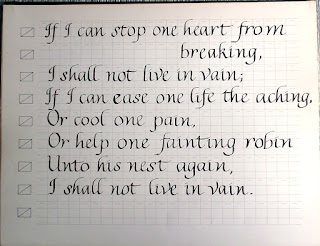 If I can stop one heart from
breaking,
I shall not live in vain;
If I can ease one life the aching,
Or cool one pain,
Or help one fainting robin
Unto his nest again,
I shall not live in vain.